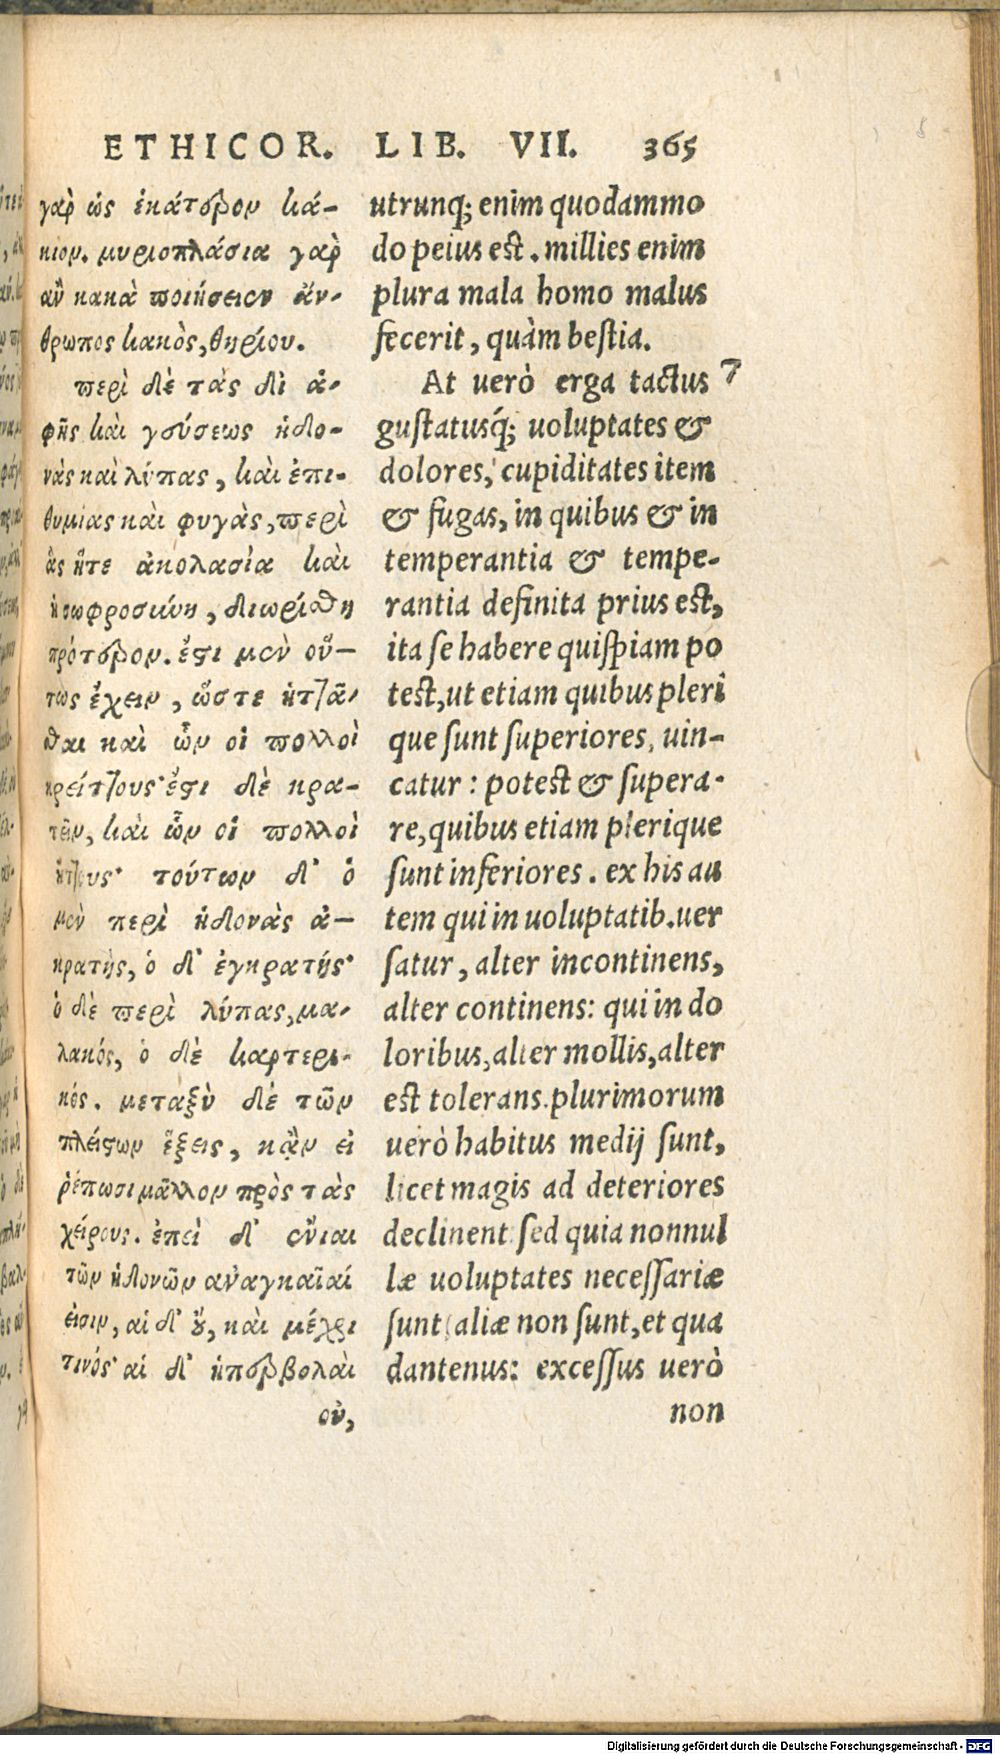 ETHICOR. LIB. VII. 365
γὰρ ὡς ἑκάτερον κά-
κιον. μυριοπλάσια γὰρ
ἂν κακὰ ποιήσειεν ἄν-
θρωπος κακὸς, θηρίου.
περὶ δὲ τὰς δι ἁ-
φῆς καὶ γεύσεως ἡδο-
νὰς καὶ λύπας, καὶ ἐπι-
θυμίας καὶ φυγὰς, περὶ
ἃς ἥτε ἀκολασία καὶ
ἡ σωφροσύνη, διωρίσθη
πρότερον. ἔστι μὲν οὕ-
τως ἔχειν, ὥστε ἡττᾶ-
σθαι καὶ ὧν οἱ πολλοὶ
κρείττους· ἔστι δὲ κρα-
τεῖν, καὶ ὧν οἱ πολλοὶ
ἥττους· τούτων δ' ὁ
μὲν περὶ ἡδονὰς ἀ-
κρατὴς, ὁ δ' ἐγκρατής·
ὁ δὲ περὶ λύπας, μα-
λακός, ὁ δὲ καρτερι-
κός. μεταξὺ δὲ τῶν
πλείστων ἕξεις, κἂν εἰ
ῥέπωσι μᾶλλον πρὸς τὰς
χείρους. ἐπεὶ δ' ἔνιαι
τῶν ἡδονῶν ἀναγκαῖαί
εἰσιν, αἱ δ' οὔ, καὶ μέχρι
τινός· αἱ δ' ὑπερβολαὶ
οὐ,
utrunq; enim quodammo
do peius est. millies enim
plura mala homo malus
fecerit, quàm bestia.
At uerò erga tactus 7
gustatusq́; uoluptates &
dolores, cupiditates item
& fugas, in quibus & in
temperantia & tempe-
rantia definita prius est,
ita se habere quispiam po
test, ut etiam quibus pleri
que sunt superiores, uin-
catur: potest & supera-
re, quibus etiam plerique
sunt inferiores. ex his au
tem qui in uoluptatib. uer
satur, alter incontinens,
alter continens: qui in do
loribus, alter mollis, alter
est tolerans. plurimorum
uerò habitus medij sunt,
licet magis ad deteriores
declinent. sed quia nonnul
læ uoluptates necessariæ
sunt, aliæ non sunt, et qua
dantenus: excessus uerò
non
Digitalisierung gefördert durch die Deutsche Forschungsgemeinschaft - DFG